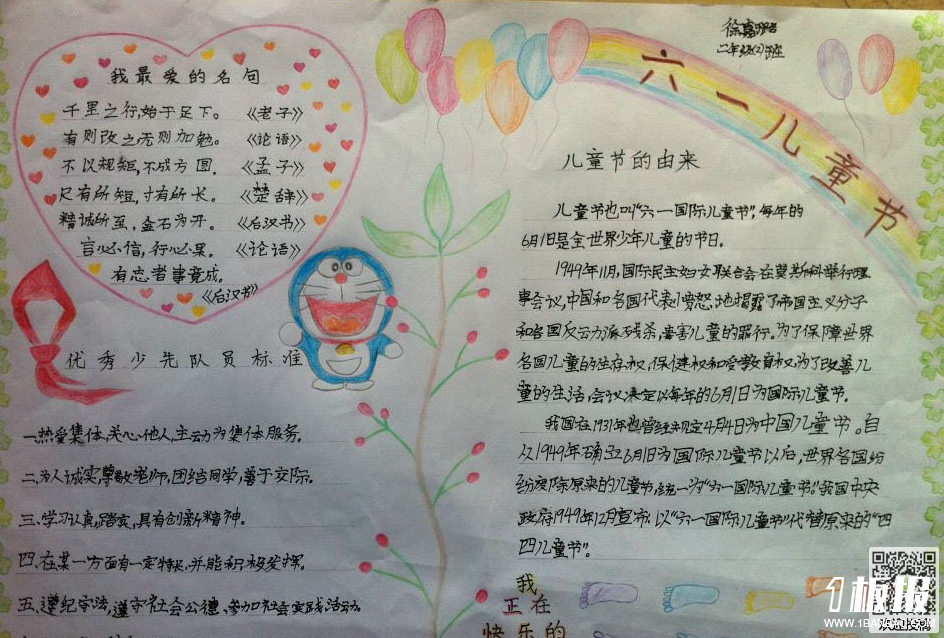 我最爱的名句
千里之行,始于足下。《老子》
有则改之无则加勉。《论语》
不以规矩,不成方圆.《孟子》
尺有所短,寸有所长.《楚辞》
精诚所至,金石为开.《后汉书》
言必信,行必果.《论语》
有志者事竟成.
《后汉书》
优秀少先队员标准
一.热爱集体、关心他人,主动为集体服务.
二.为人诚实,尊敬老师,团结同学,善于交际.
三.学习认真,踏实,具有创新精神.
四.在某一方面有一定特长,并能积极发挥.
五.遵纪守法,遵守社会公德.参加社会实践活动.
二年级(2)班
六一儿童节
儿童节的由来
儿童节也叫“六一国际儿童节”,每年的
6月1日是全世界少年儿童的节日.
1949年11月,国际民主妇女联合会在莫斯科举行理
事会议,中国和各国代表愤怒地揭露了帝国主义分子
和各国反动派残杀,毒害儿童的罪行.为了保障世界
各国儿童的生存权,保健权和受教育权,为了改善儿
童的生活,会议决定以每年的6月1日为国际儿童节.
我国在1931年也曾经规定4月4日为中国儿童节.自
从1949年确立6月1日为国际儿童节以后,世界各国纷
纷废除原来的儿童节,统一为“六一国际儿童节”.我国中央
政府1949年12月宣布:以“六一国际儿童节”代替原来的“四
四儿童节”.
我
正在
快乐的
1板报
WWW.1BANBAO.COM